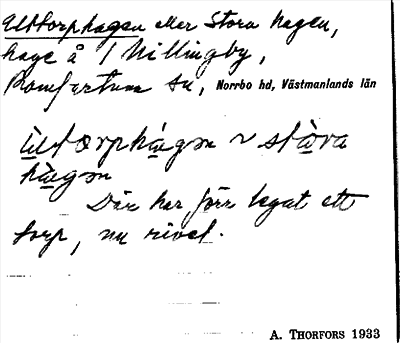 Uttorphagen eller Stora hagen,
hage å 1 Millingby,
Romfartuna sn, Norrbo hd, Västmanlands län
stòra
Där har förr legat ett
torp, nu rivet.
A. THORFORS 1933